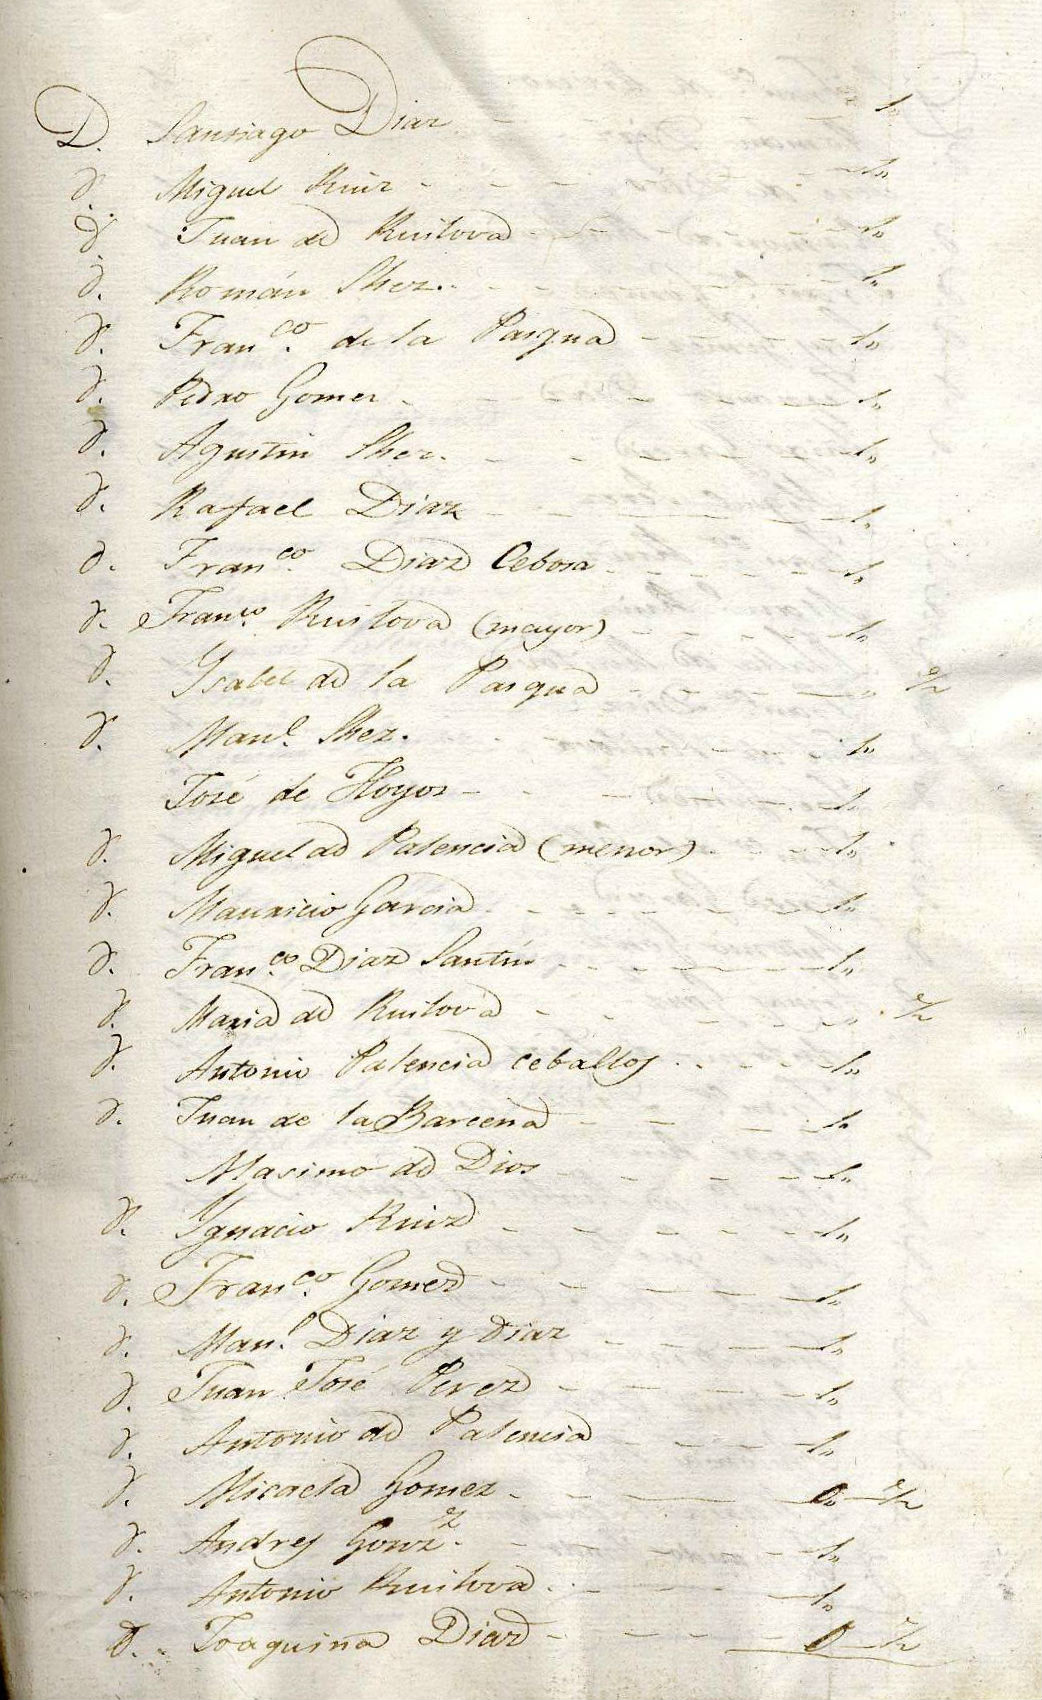 D. Santiago Diaz - - - - - 1„
d. Miguel Ruiz - - - - - 1„
d. Juan de Ruilova - - - - - 1„
d. Román Shez. - - - - - 1„
d. Fran.co de la Pasqua - - - - - 1„
d. Pedro Gomez - - - - - 1„
d. Agustin Shez. - - - - - 1„
d. Rafael Diaz - - - - - 1„
d. Fran.co Diaz Cebosa - - - - - 1„
d. Fran.co Ruilova (mayor) - - - - - 1„
d. Ysabel de la Pasqua - - - - - „ 1/2
d. Man.l Shez. - - - - - 1„
José de Hoyos - - - - - 1„
d. Miguel de Palencia (menor) - - - - 1„
d. Mauricio Garcia - - - - - 1„
d. Fran.co Diaz Santin - - - - - 1„
d. Maria de Ruilova - - - - - „ 1/2
d. Antonio Palencia Ceballos - - - - 1„
d. Juan de la Barcena - - - - 1„
Masimo de Dios - - - - 1„
d. Ygnacio Ruiz - - - - - 1„
d. Fran.co Gomez - - - - - 1„
d. Man.l Diaz y Diaz - - - - - 1„
d. Juan José Perez - - - - - 1„
d. Antonio de Palencia - - - - 1„
d. Micaela Gomez - - - - 0„ 1/2
d. Andres Gonz.z - - - - - 1„
d. Antonio Ruilova - - - - 1„
d. Joaquina Diaz - - - - - 0 1/2